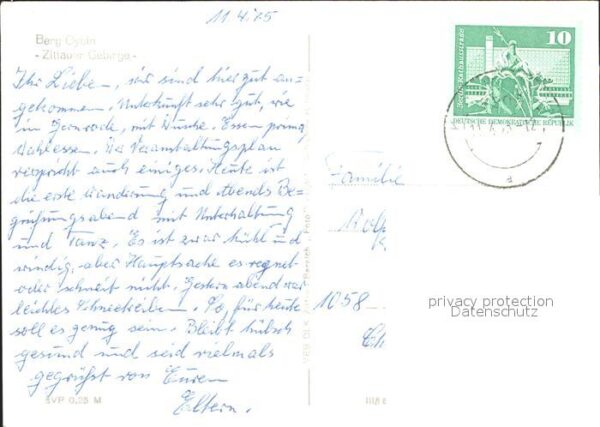 11.4.75
Berg Oybin
- Zittauer Gebirge -
Ihr Lieben, wir sind hier gut an-
gekommen. Unterkunft sehr gut, wie
im, mit Dusche. Essen prima,
Wahlessen. Der Veranstaltungsplan
verspricht auch einiges. Heute ist
die erste Wanderung und Abends Be-
grüßungsabend mit Unterhaltung
und Tanz. Es ist zwar kühl und
windig, aber Hauptsache es regnet
oder schneit nicht. Gestern abend war
leichtes Schneetreiben. So, für heute
soll es genug sein. Bleibt hübsch
gesund und seid vielmals
gegrüßt von Euren
Eltern.
EVP 0,25 M
10
Berlin, Rathausstraße
DEUTSCHE DEMOKRATISCHE REPUBLIK
Familie
Rolf
1058
Ch
privacy protection
Datenschutz